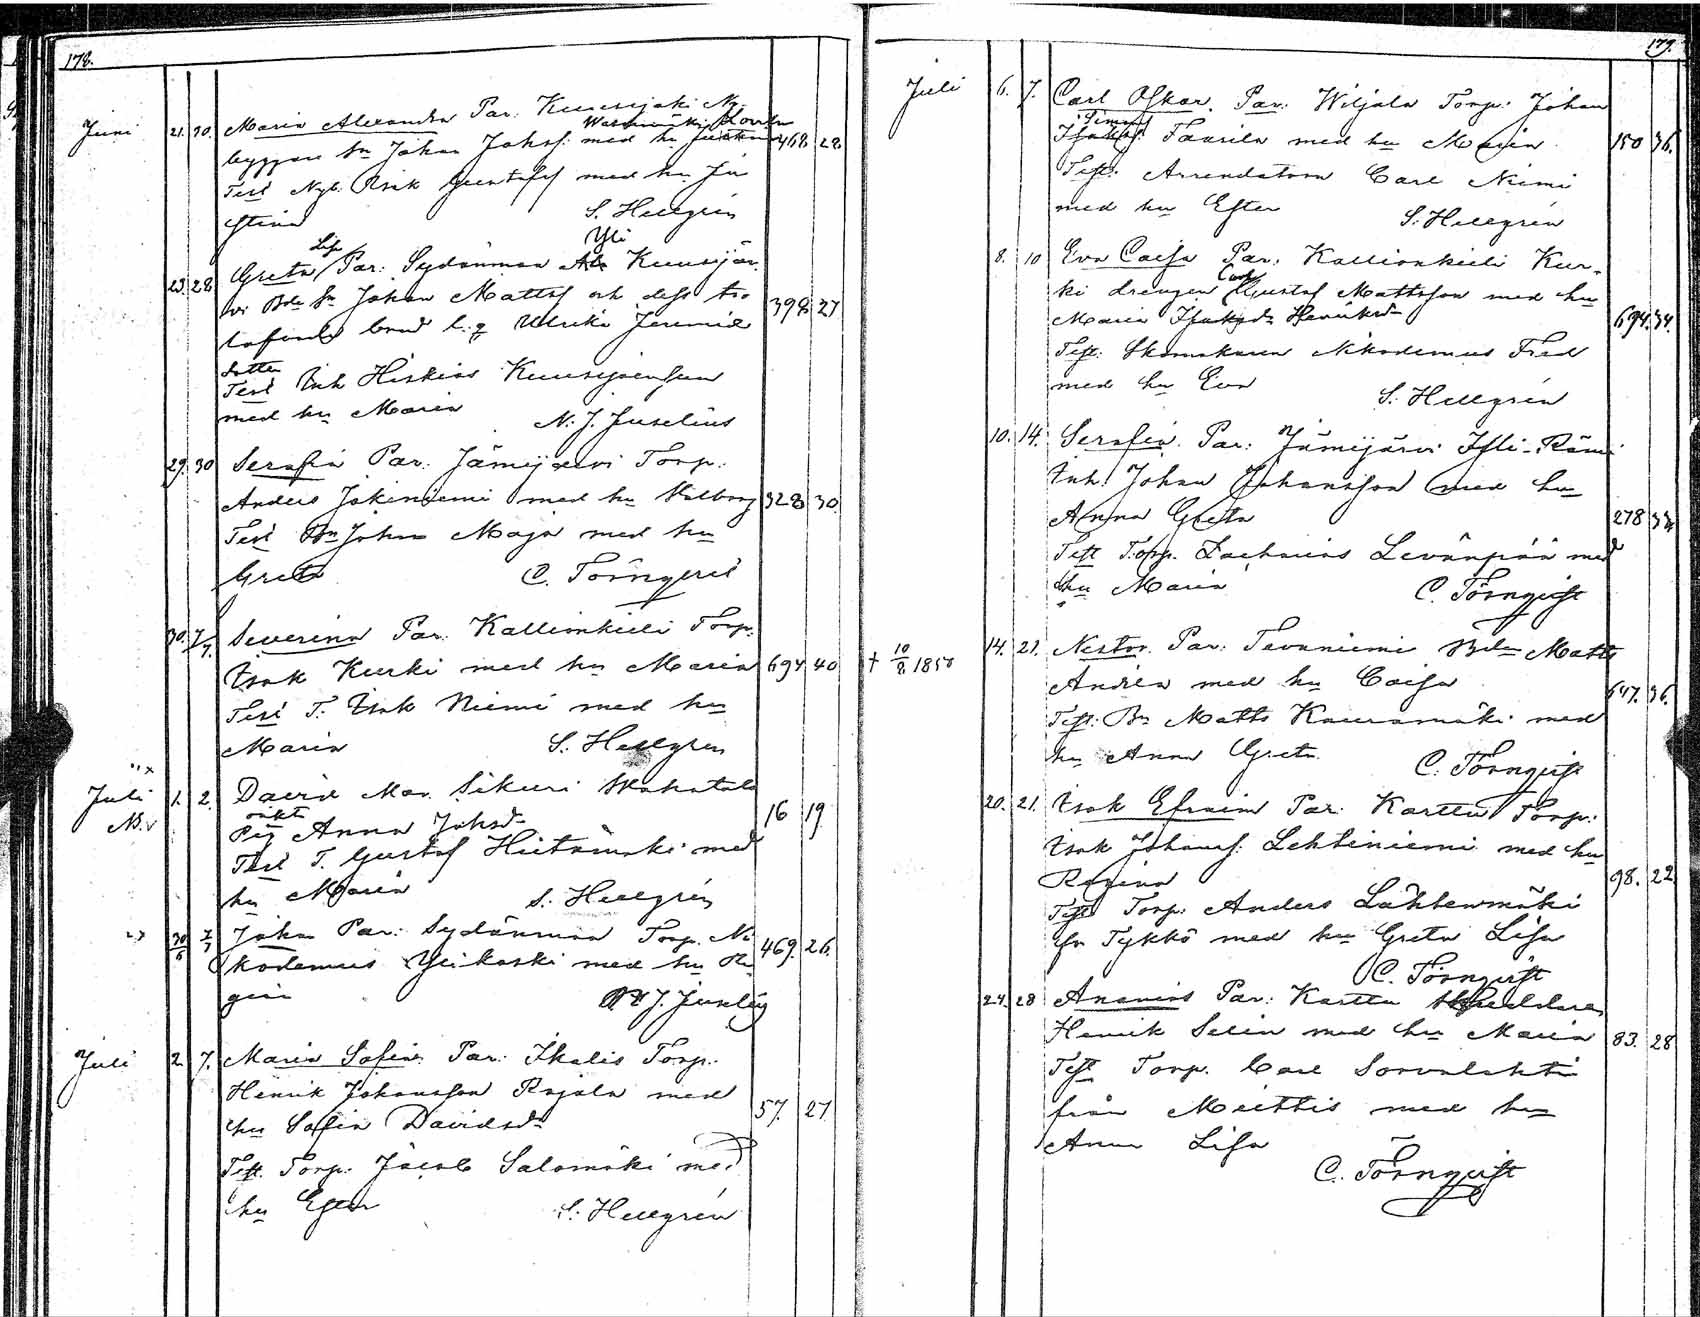 178.
Juni 21. 30. Maria Alexandra Par: Kuusijoki Ny-
byggare Sn Johan Johsf: med hu 468 28
Test Nyb: Isak Gustafsf med hu Ju
stina S. Hellgrén
Lisa Yli
23. 28. Greta Par: Sydänmaa Kuusijär
vi Bde Sn Johan Mattsf och dess tro 398 27
lofvade brud Ulrika Jeremie
dotter
Test Inh Hiskias Kuusijoensuu
med hu Maria N. J. Juselius
29. 30 Serafia Par: Jämijärvi Torp:
Anders Jokiniemi med hu Walborg 328 30.
Test Bn Johan Maja med hu
Greta C. Törnqvist
30. 7/7. Severina Par: Kallionkieli Torp:
Isak Kurki med hu Maria 694 40
Test T: Isak Niemi med hu
Maria S. Hellgrén
Juli 1. 2. David Mor. Sikuri
NB. oäkt
Pig Anna Johsdr 16 19
Test T. Gustaf Hietamäki med
hu Maria S. Hellgrén
30/6 7/7 Johan Par: Sydänmaa Torp. Ni
kodemus med hu Re 469. 26.
gina N J. Juselius
Juli 2 7. Maria Sofia Par: Ikalis Torp:
Henrik Johansson Rajala med
hu Sofia Davidsdr 57. 27.
Test. Torp: Jacob Salomäki med
hu Ester S. Hellgrén
179.
Juli 6. 7. Carl Oskar. Par: Wiljala Torp: Johan
Simon
Isaksf: Taurila med hu Maria 150 36.
Test: Arrendatorn Carl Niemi
med hu Ester S: Hellgrén
8. 10 Eva Caisa Par: Kallionkieli Kur-
Carl
ki drengen Gustaf Mattsson med hu
Maria Isaksdr Henriksdr 694. 34.
Test: Skomakaren Nikodemus Fred
med hu Eva S: Hellgrén
10. 14. Serafia Par: Jämijärvi Yli-Rämi
Inh. Johan Johansson med hu
Anna Greta 278
Test Torp. Zacharias Levänpää med
hu Maria C. Törnqvist
† 10/8 1850 14. 21. Nestor Par: Tevaniemi Bden Matts
Andrén med hu Caisa 647. 36.
Test: Bn Matts Kauramäki med
hu Anna Greta C: Törnqvist
20. 21. Isak Efraim Par: Karttu Torp:
Isak Johansf: Lehtiniemi med hu
Regina 98. 22
Test Torp: Anders Lähteenmäki
fr Tykkö med hu Greta Lisa
C. Törnqvist
24. 28 Ananias Par: Karttu
Henrik Selin med hu Maria 83. 28
Test Torp. Carl Sorvalahti
från Miettis med hu
Anna Lisa
C. Törnqvist